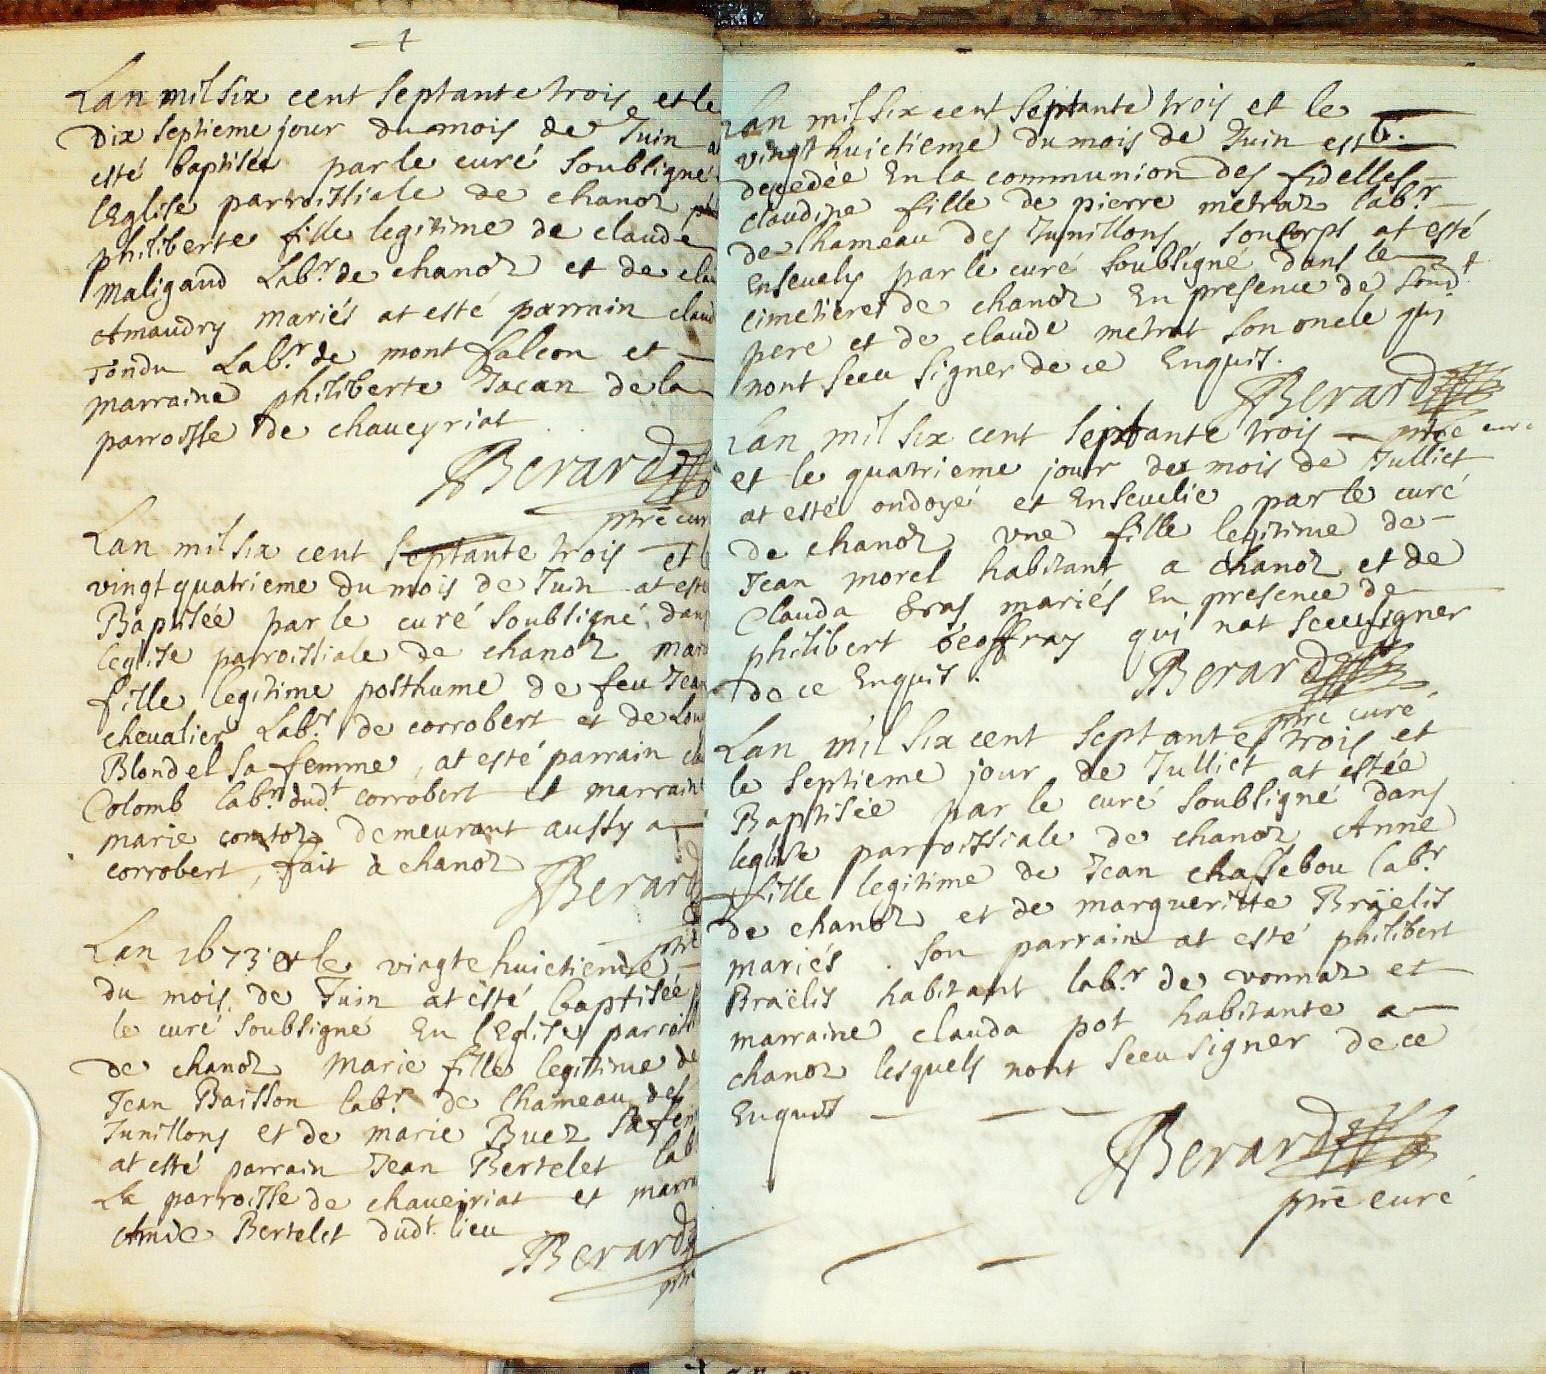 Lan mil six cent septante trois et le
dix septieme jour du mois de Juin a
esté baptisée par le curé soubsigné
lEglise parroissiale de chanoz
philiberte fille legitime de claude
Maligand Labr. de chanoz et de clau
Amaudry mariés at esté parrain claud
Tondu Labr. de mont falcon et
marraine philiberte Jacan de la
parroisse de chaueyriat
Berard
ptre cur
Lan mil six cent septante trois et le
vingt quatrieme du mois de Juin at esté
Baptisée par le curé soubsigné, dans
leglise parroissiale de chanoz mari
fille legitime posthume de feu Jean
cheualier Labr. de corrobert et de Lou
Blondel sa femme, at esté parrain cla
Colomb labr. dudt. corrobert et marraine
marie comtoz demeurant aussy a
corrobert, fait a chanoz
Berard
ptre
Lan 1673 et le vingte huictieme
du mois de Juin at esté baptisée p
le curé soubsigné En lEglise parroiss
de chanoz Marie fille legitime de
Jean Baisson labr. de lhameau des
Junillons et de marie Buez sa fem
at esté parrain Jean Bertelet lab
La parroisse de chaueiriat et marra
Bertelet dudt. lieu
Berard
ptre
Lan mil six cent septante trois et le
vingt huictieme du mois de Juin est
decedée En la communion des fidelles
claudine fille de pierre metraz labr.
de lhameau des Junillons, son Corps at esté
Enseuely par le curé soubsigné dans le
cimetiere de chanoz En presence de sondt.
pere et de claude metrat son oncle qui
nont sceu signer de ce Enquis.
Berard
ptre curé
Lan mil six cent septante trois
et le quatrieme jour des mois de Julliet
at esté ondoyé et Enseuelie par le curé
de chanoz vne fille legitime de
Jean morel habitant a chanoz et de
Clauda Gras mariés En presence de
philibert Geoffray qui nat sceu signer
de ce Enquis.
Berard
ptre curé
Lan mil six cent septante trois et
le septieme jour de Julliet at estée
Baptisée par le curé soubsigné dans
leglise parroissiale de chanoz Anne
fille legitime de Jean chassebou labr.
de chanoz et de margueritte Braÿelis
mariés. son parrain at esté philibert
Braëlis habitant labr. de vonnaz et
marraine clauda pot habitante a
chanoz lesquels nont sceu signer de ce
Enquis
Berard
ptre curé